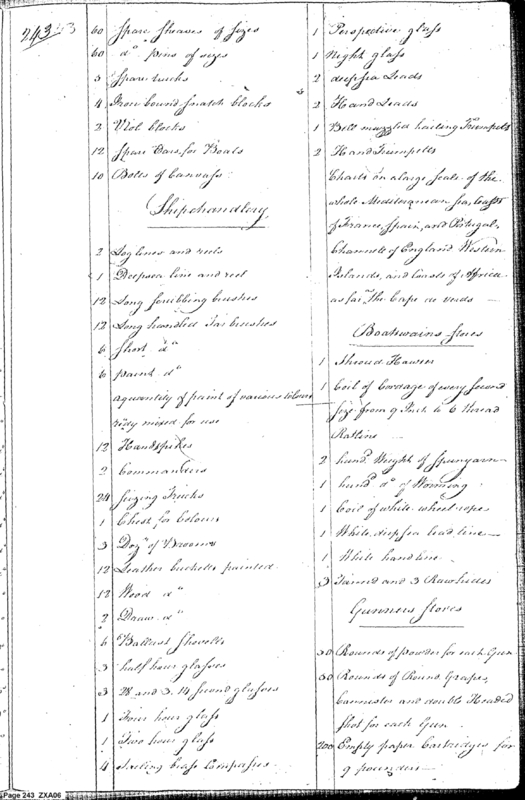 243
60 Spare Sheaves of sizes
60 do pins of sizes
3 Spare
4 Iron bound snatch blocks
2 Viol blocks
12 Spare Oars for Boats
10 Bolts of Canvass
Shipchandlery
2 Log lines and reels
1 Deepsea line and reel
12 Long scrubbing brushes
12 Long handled Tar brushes
6 Short do
6 paint do
a quantity of paint of various colours
redy mixed for use
12 Handspikes
2 Commanders
24 seizing Trucks
1 Chest for Colours
3 Dozn of Brooms
12 Leather buckets painted
12 Wood do
2 Draw do
6 Ballast Shovells
3 half hour glasses
3 28 and 3. 14 second glasses
1 Four hour glass
1 Two hour glass
4 brass Compasses
1 Perspective glass
1 Night glass
2 deepsea Leads
2 Hand Leads
1 Bell muzzled hailing Trumpett
2 Hand Trumpetts
Charts on a large Scale of the
whole Mediteranean sea, Coast
of France, Spain, and Portugal,
Channels of England Western
Islands, and Coast of Africa
as far as the Cape de verds
Boatswains Stores
1 Shroud Hawser
1 Coil of Cordage of every second
size from 9 Inch to 6 thread
Ratline
2 hund. Weight of Spunyarn
1 hund. do of Worming
1 Coil of white wheel rope
1 White deepsea lead line
1 White handline
3 Tanned and 3 Rawhides
Gunners Stores
30 Rounds of powder for each Gun
30 Rounds of Round, Grape,
cannester and double Headed
Shot for each Gun
200 Empty paper Cartridges for
9 pounders
Page 243 ZXA06